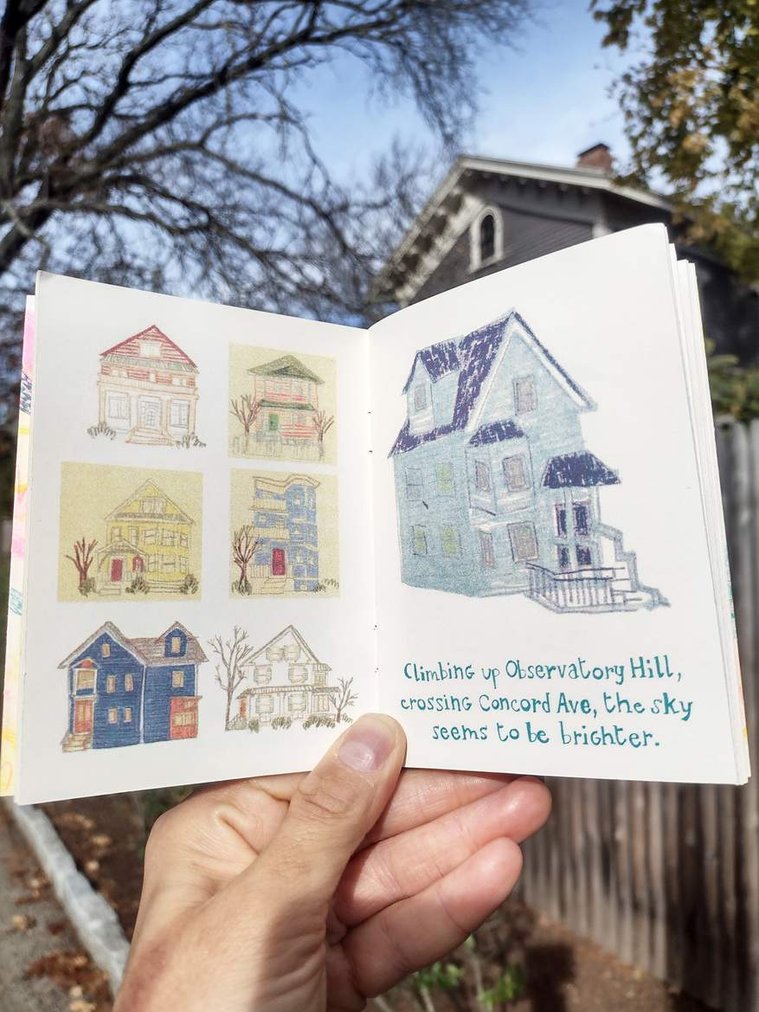 Climbing up Observatory Hill,
crossing Concord Ave, the sky
seems to be brighter.